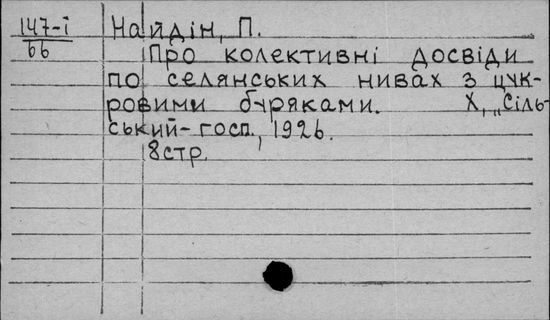 147-і Найдін, П.
66
Про колективні досвіди
по селянських нивах з цук-
ровими буряками. Х, „Сіль-
ський-госп., 1926.
8стр.